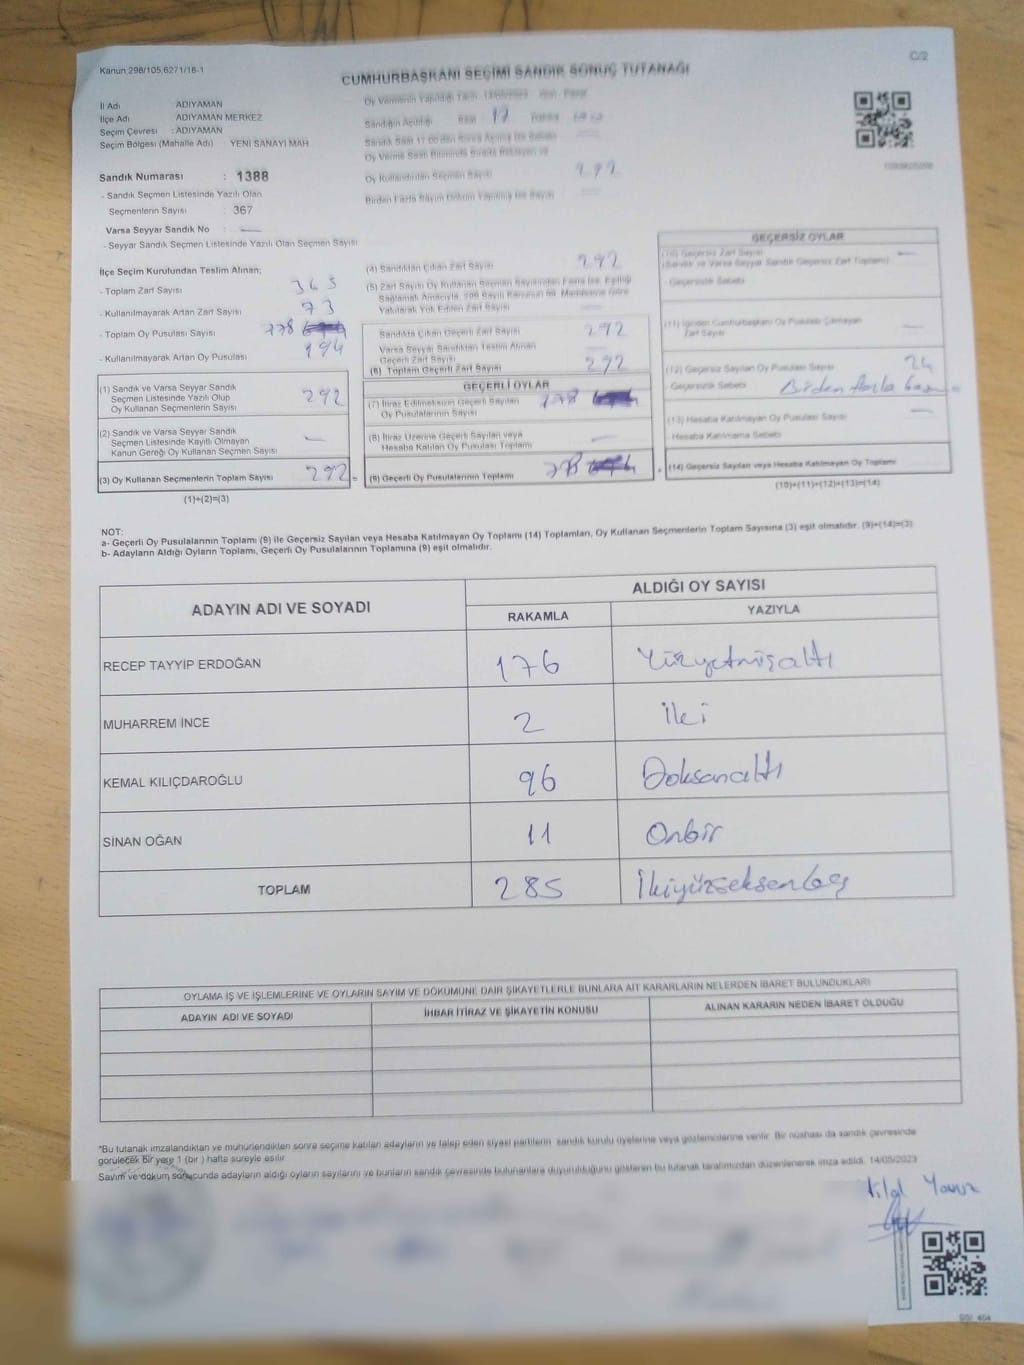 Kanun:298/105,6271/16-1
C/2
CUMHURBAŞKANI SEÇİMİ SANDIK SONUÇ TUTANAĞI
İl Adı ADIYAMAN
İlçe Adı ADIYAMAN MERKEZ
Seçim Çevresi : ADIYAMAN
Seçim Bölgesi (Mahalle Adı) YENİ SANAYİ MAH.
Sandık Numarası : 1388
- Sandık Seçmen Listesinde Yazılı Olan
Seçmenlerin Sayısı : 367
Varsa Seyyar Sandık No : —
- Seyyar Sandık Seçmen Listesinde Yazılı Olan Seçmen Sayısı
Oy Vermenin Yapıldığı Tarih
Sandığın Açıldığı Saat 17
Sandık Saat 17.00'den Sonra Açılmış İse Sebebi
Oy Kullandırılan Seçmen Sayısı 292
Birden Fazla Sayım Döküm Yapılmış İse Sayısı
İlçe Seçim Kurulundan Teslim Alınan;
- Toplam Zarf Sayısı 365
- Kullanılmayarak Artan Zarf Sayısı 73
- Toplam Oy Pusulası Sayısı
- Kullanılmayarak Artan Oy Pusulası 194
(1) Sandık ve Varsa Seyyar Sandık
Seçmen Listesinde Yazılı Olup
Oy Kullanan Seçmenlerin Sayısı 292
(2) Sandık ve Varsa Seyyar Sandık
Seçmen Listesinde Kayıtlı Olmayan
Kanun Gereği Oy Kullanan Seçmen Sayısı —
(3) Oy Kullanan Seçmenlerin Toplam Sayısı 292 =
(1)+(2)=(3)
(4) Sandıktan Çıkan Zarf Sayısı 292
(5) Zarf Sayısı Oy Kullanan Seçmen Sayısından Fazla İse, Eşitliği
Sağlamak Amacıyla, 298 Sayılı Kanunun 98. Maddesine Göre
Yakılarak Yok Edilen Zarf Sayısı —
Sandıkta Çıkan Geçerli Zarf Sayısı 292
Varsa Seyyar Sandıktan Teslim Alınan
Geçerli Zarf Sayısı —
(6) Toplam Geçerli Zarf Sayısı 292
GEÇERLİ OYLAR
(7) İtiraz Edilmeksizin Geçerli Sayılan
Oy Pusulalarının Sayısı
(8) İtiraz Üzerine Geçerli Sayılan veya
Hesaba Katılan Oy Pusulası Toplamı —
(9) Geçerli Oy Pusulalarının Toplamı
GEÇERSİZ OYLAR
(10) Geçersiz Zarf Sayısı —
(Sandık ve Varsa Seyyar Sandık Geçersiz Zarf Toplamı)
- Geçersizlik Sebebi
(11) İçinden Cumhurbaşkanı Oy Pusulası Çıkmayan
Zarf Sayısı —
(12) Geçersiz Sayılan Oy Pusulası Sayısı 24
- Geçersizlik Sebebi Birden fazla
(13) Hesaba Katılmayan Oy Pusulası Sayısı —
- Hesaba Katılmama Sebebi
(14) Geçersiz Sayılan veya Hesaba Katılmayan Oy Toplamı
(10)+(11)+(12)+(13)=(14)
NOT:
a- Geçerli Oy Pusulalarının Toplamı (9) ile Geçersiz Sayılan veya Hesaba Katılmayan Oy Toplamı (14) Toplamları, Oy Kullanan Seçmenlerin Toplam Sayısına (3) eşit olmalıdır. (9)+(14)=(3)
b- Adayların Aldığı Oyların Toplamı, Geçerli Oy Pusulalarının Toplamına (9) eşit olmalıdır.
ADAYIN ADI VE SOYADI ALDIĞI OY SAYISI
RAKAMLA YAZIYLA
RECEP TAYYİP ERDOĞAN 176 Yüzyetmişaltı
MUHARREM İNCE 2 İki
KEMAL KILIÇDAROĞLU 96 Doksanaltı
SİNAN OĞAN 11 Onbir
TOPLAM 285 İkiyüzseksenbeş
OYLAMA İŞ VE İŞLEMLERİNE VE OYLARIN SAYIM VE DÖKÜMÜNE DAİR ŞİKAYETLERLE BUNLARA AİT KARARLARIN NELERDEN İBARET BULUNDUKLARI
ADAYIN ADI VE SOYADI İHBAR İTİRAZ VE ŞİKAYETİN KONUSU ALINAN KARARIN NEDEN İBARET OLDUĞU
*Bu tutanak imzalandıktan ve mühürlendikten sonra seçime katılan adayların ve talep eden siyasi partilerin sandık kurulu üyelerine veya gözlemcilerine verilir. Bir nüshası da sandık çevresinde
görülecek bir yere 1 (bir ) hafta süreyle asılır.
Sayım ve döküm sonucunda adayların aldığı oyların sayılarını ve bunların sandık çevresinde bulunanlara duyurulduğunu gösteren bu tutanak tarafımızdan düzenlenerek imza edildi. 14/05/2023